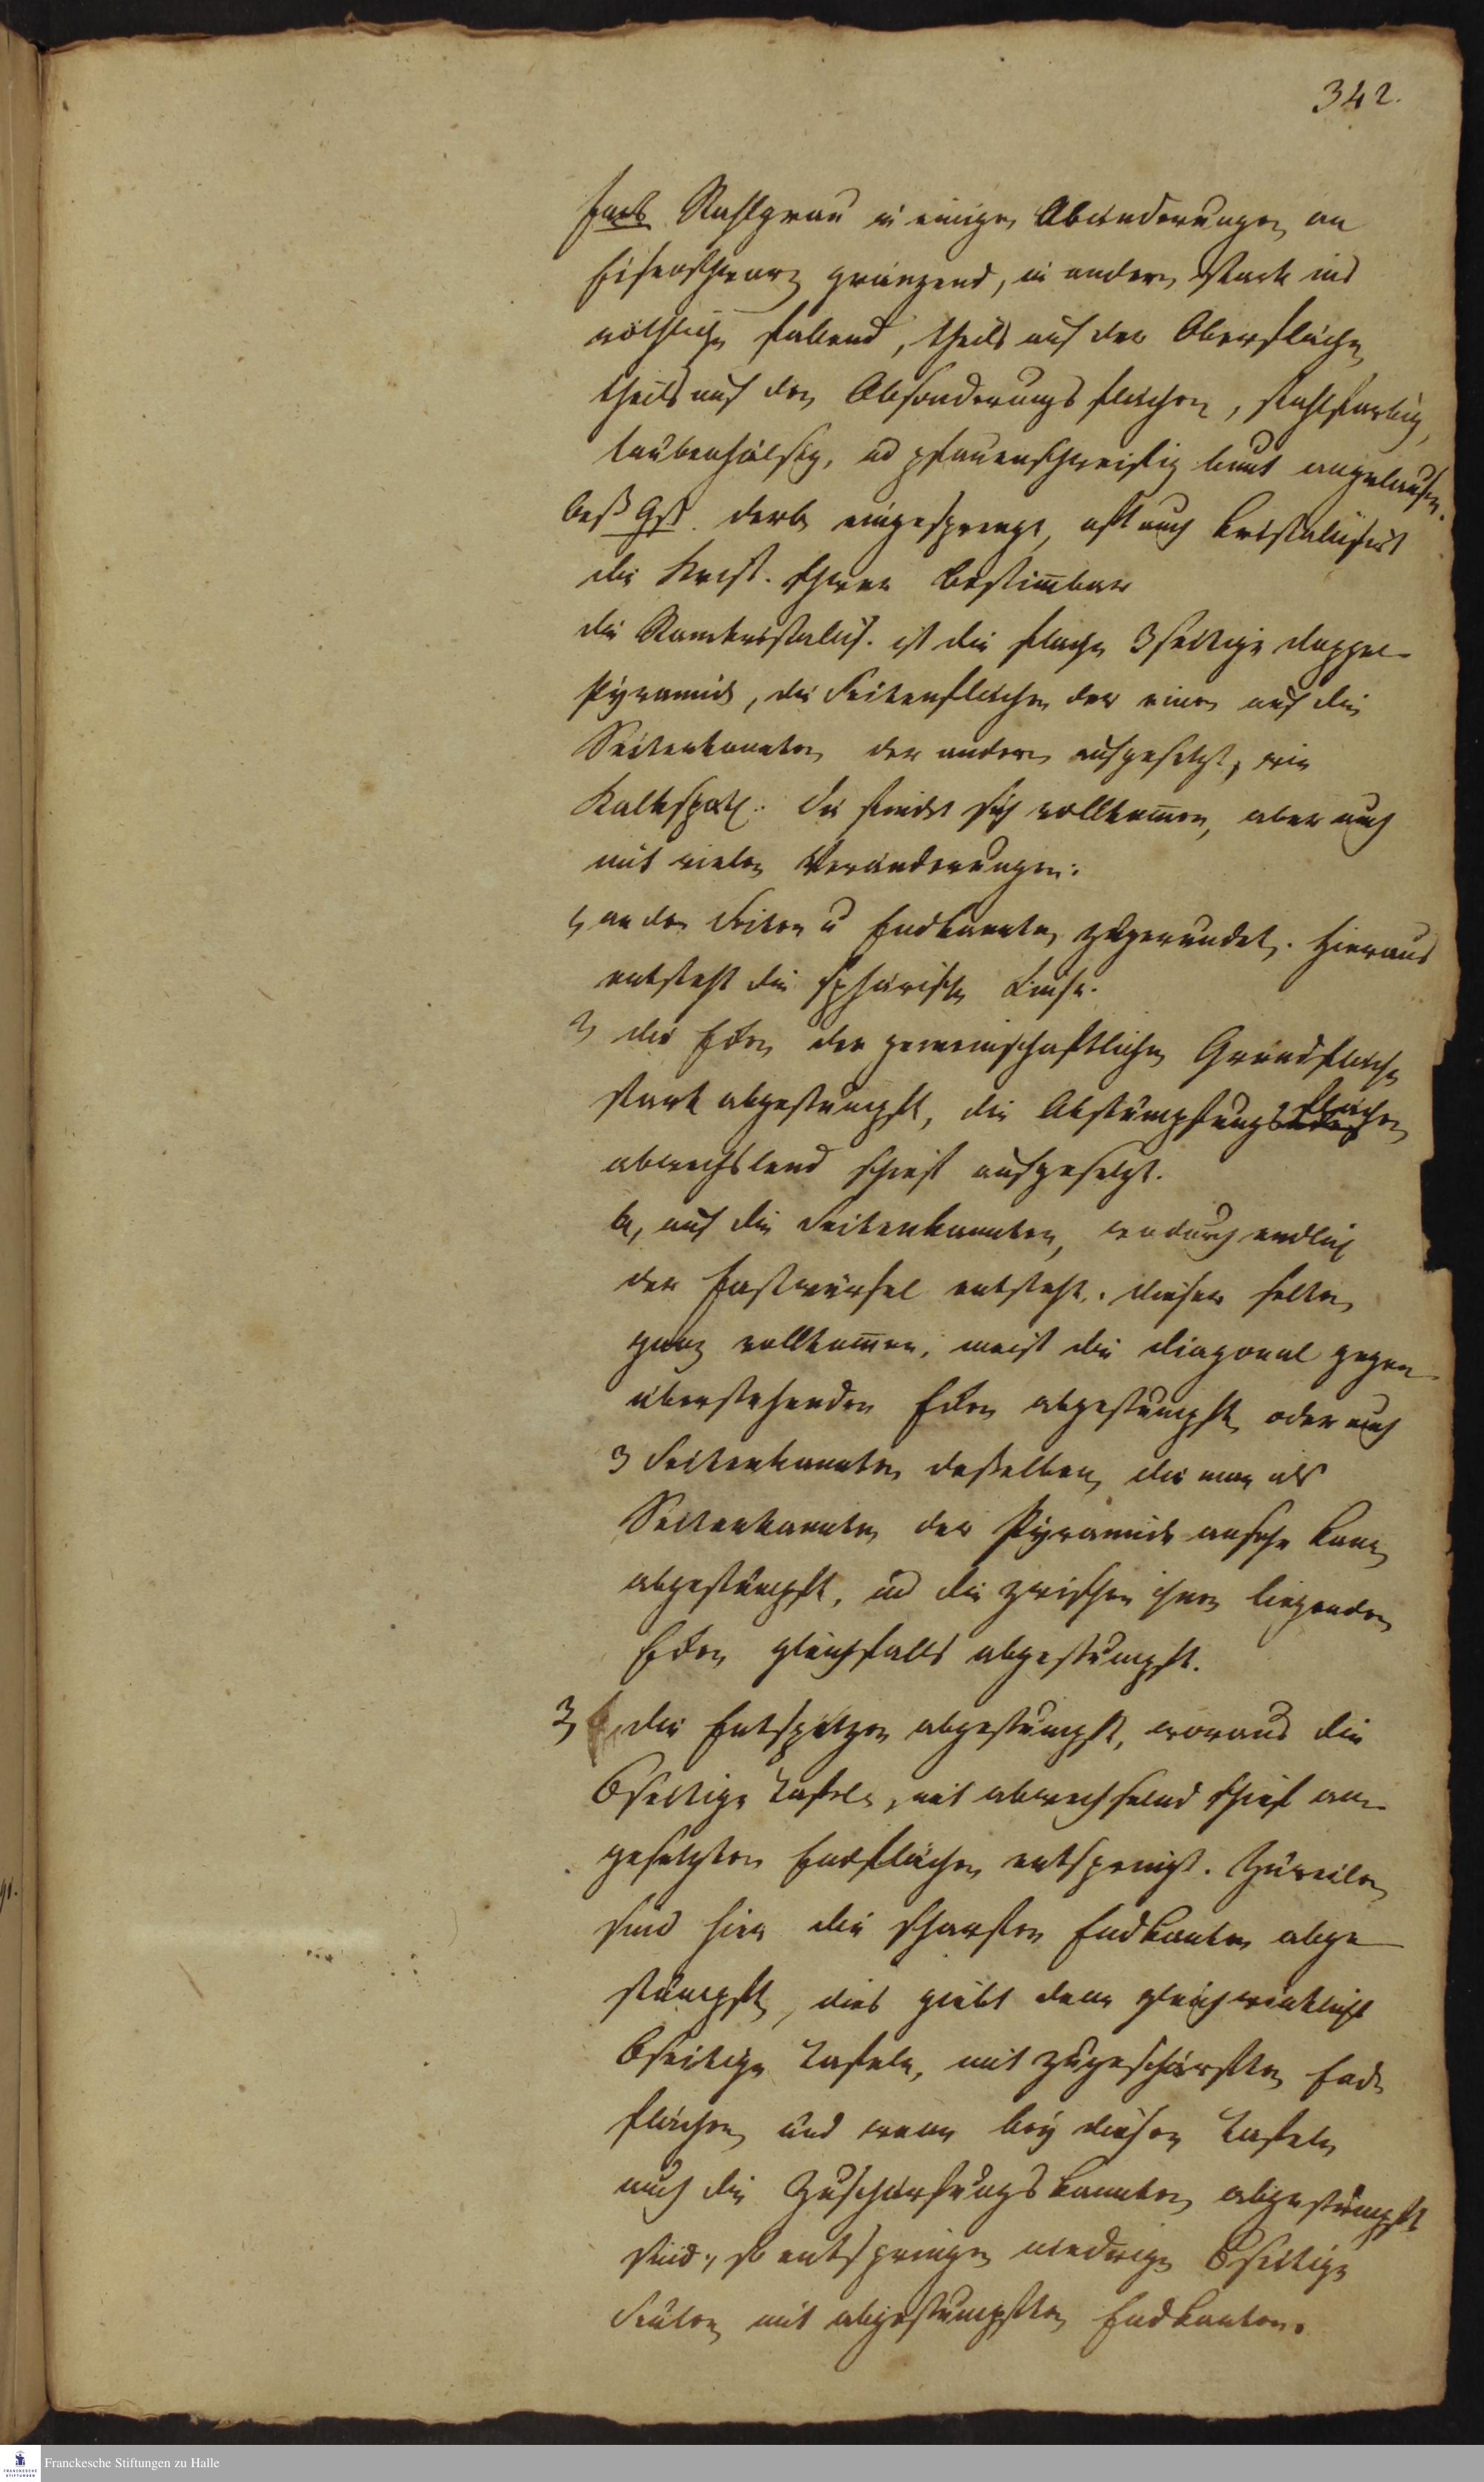 342.
Farb Stahlgrau in einigen Abänderungen an
Eisenschwarz gränzend, in andern stark ins
röthliche fallend, theils auf der Oberfläche
theils auf den Absonderungsflächen, stahlfarbig,
taubenhälsig, ud pfauenschweifig bunt angelaufen.
beß Gst. derb eingesprengt, oft auch kristalisirt
die Krist. schwer bestim̅bar
die Kernkristalis. ist die flache 3seitige doppel-
Pyramide, die Seitenflächen der einen auf die
Seitenkannten der andern aufgesetzt, wie
Kalkspath. Sie findet sich vollkom̅en, aber auch
mit vielen Veränderungen:
1, an den Seiten u Endkannten zugerundet. Hieraus
entsteht die sphärische Linse.
2, die Ecken der gemeinschaftlichen Grundfläche
stark abgestumpft, die Abstumpfungsflächen
abwechslend schief aufgesetzt.
a, auf die Seitenkannten, wodurch endlich
der Fastwürfel entsteht. dieser selten
ganz vollkom̅en, meist die diagonal gegen-
überstehenden Ecken abgestumpft oder auch
3 Seitenkannten desselben, die man als
Seitenkannten der Pyramide ansehe kann
abgestumpft, ud die zwischen ihnen liegenden
Ecken gleichfalls abgestumpft.
3, die Entspitzen abgestumpft, woraus die
6seitige Tafeln, mit abwechselnd schief an-
gesetzten Endflächen entspringt. Zuweilen
sind hier die scharfen Endkanten abge-
stumpft, dies giebt dann gleichwinklicht
6seitige Tafeln, mit zugeschärften End-
flächen und wenn bey diesen Tafeln
auch die Zuschärfungskannten abgestumpft
sind, so entspringen niedrige 6seitige
Säulen mit abgestumpften Endkanten.
Franckesche Stiftungen zu Halle